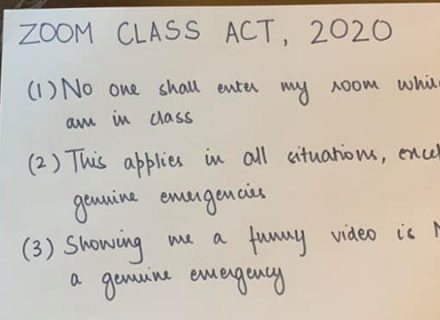 ZOOM CLASS ACT, 2020
(1) No one shall enter my room while
am in class
(2) This applies in all situations, 
genuine emergencies
(3) Showing me a funny video is
a genuine emergency